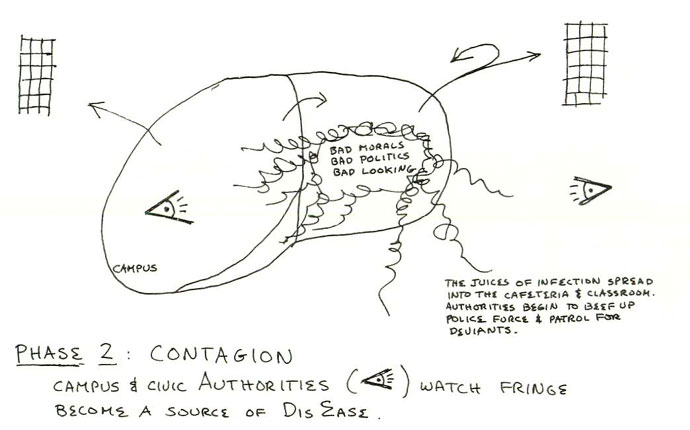 BAD MORALS
BAD POLITICS
BAD LOOKING
CAMPUS
THE JUICES OF INFECTION SPREAD
INTO THE CAFETERIA & CLASSROOM.
AUTHORITIES BEGIN TO BEEF UP
POLICE FORCE & PATROL FOR
DEVIANTS.
PHASE 2: CONTAGION
CAMPUS & CIVIC AUTHORITIES ( ) WATCH FRINGE
BECOME A SOURCE OF DIS EASE.